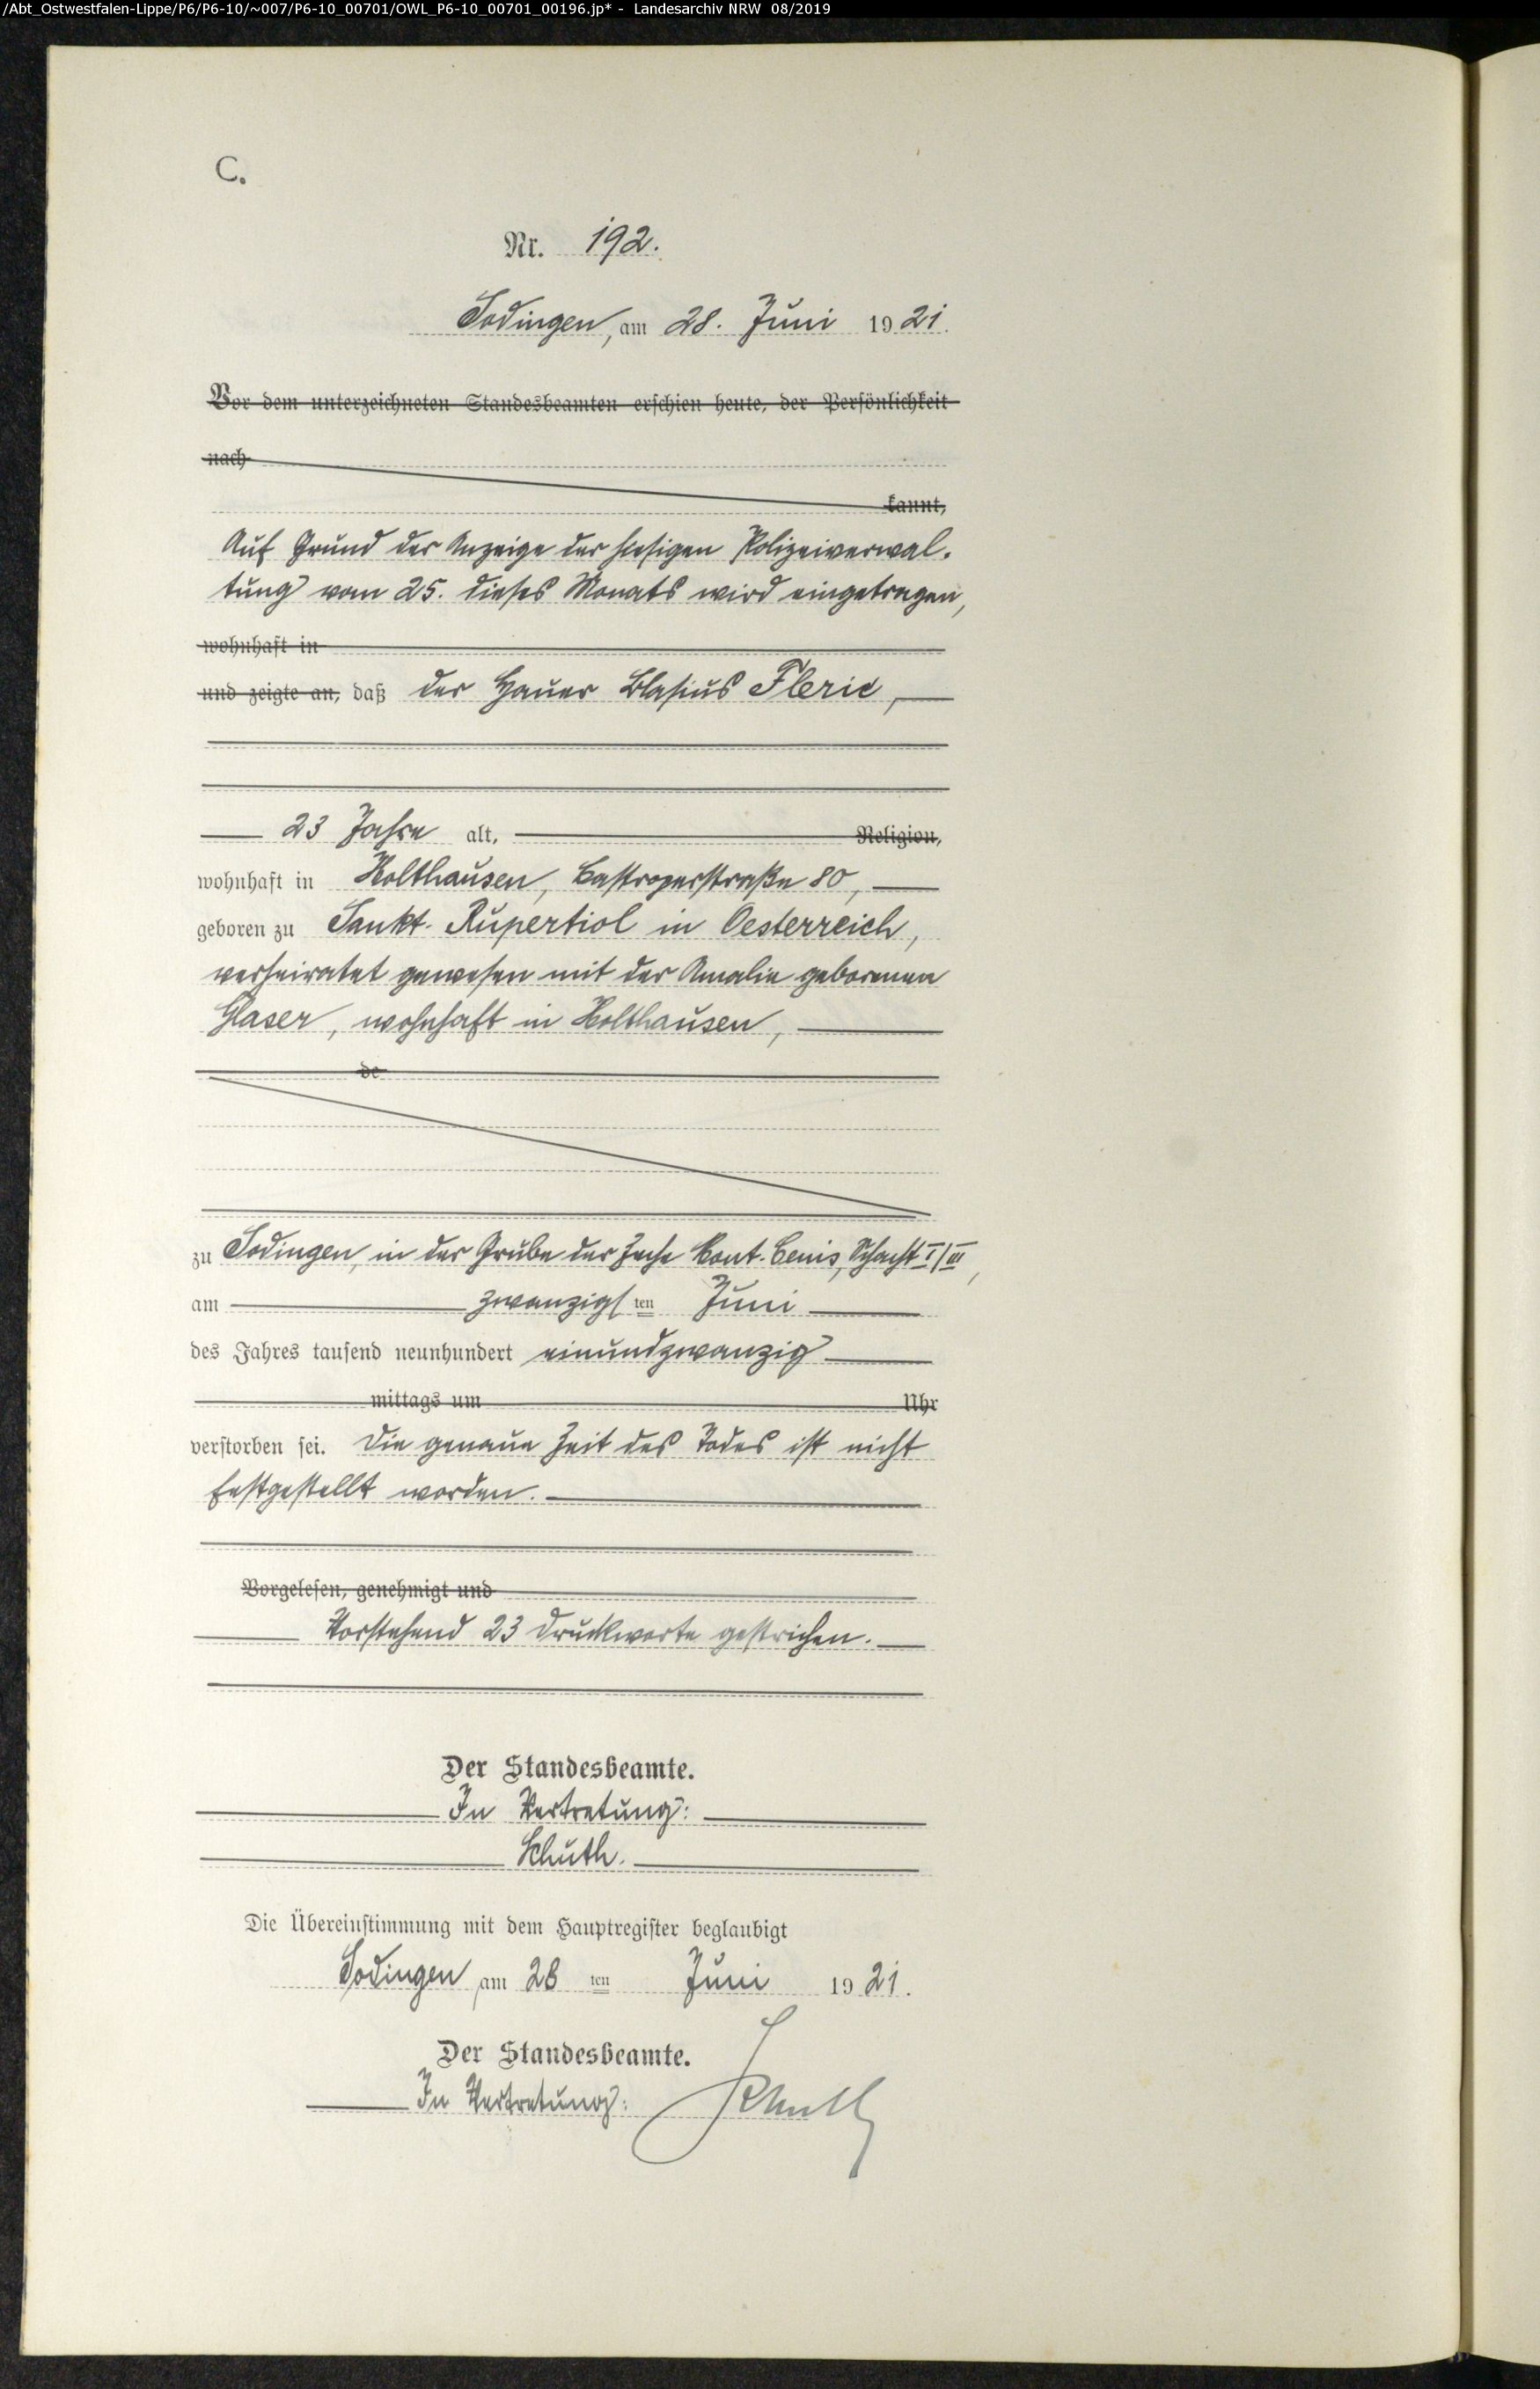 /Abt_Ostwestfalen-Lippe/P6/P6-10/~007/P6-10_00701/OWL_P6-10_00701_00196.jp* - Landesarchiv NRW 08/2019
C.
Nr. 192.
Sodingen, am 28. Juni 1921.
Vor dem unterzeichneten Standesbeamten erschien heute, der Persönlichkeit
nach
kannt,
Auf Grund der Anzeige der hiesigen Polizeiverwal-
tung vom 25. dieses Monats wird eingetragen,
wohnhaft in
und zeigte an, daß der Hauer Blasius Fleric,
23 Jahre alt, Religion,
wohnhaft in Holthausen, Castroperstraße 80,
geboren zu Sankt. Rupertiol in Oesterreich,
verheiratet gewesen mit der Amalie geborenen
Glaser, wohnhaft in Holthausen,
de
zu Sodingen, in der Grube der Zeche Mont-Cenis, Schacht I/III,
am zwanzigsten Juni
des Jahres tausend neunhundert einundzwanzig
mittags um Uhr
verstorben sei. Die genaue Zeit des Todes ist nicht
festgestellt worden.
Vorgelesen, genehmigt und
Vorstehend 23 Druckworte gestrichen.
Der Standesbeamte.
In Vertretung:
Schuth.
Die Übereinstimmung mit dem Hauptregister beglaubigt
Sodingen, am 28 ten Juni 1921.
Der Standesbeamte.
In Vertretung: Schuth